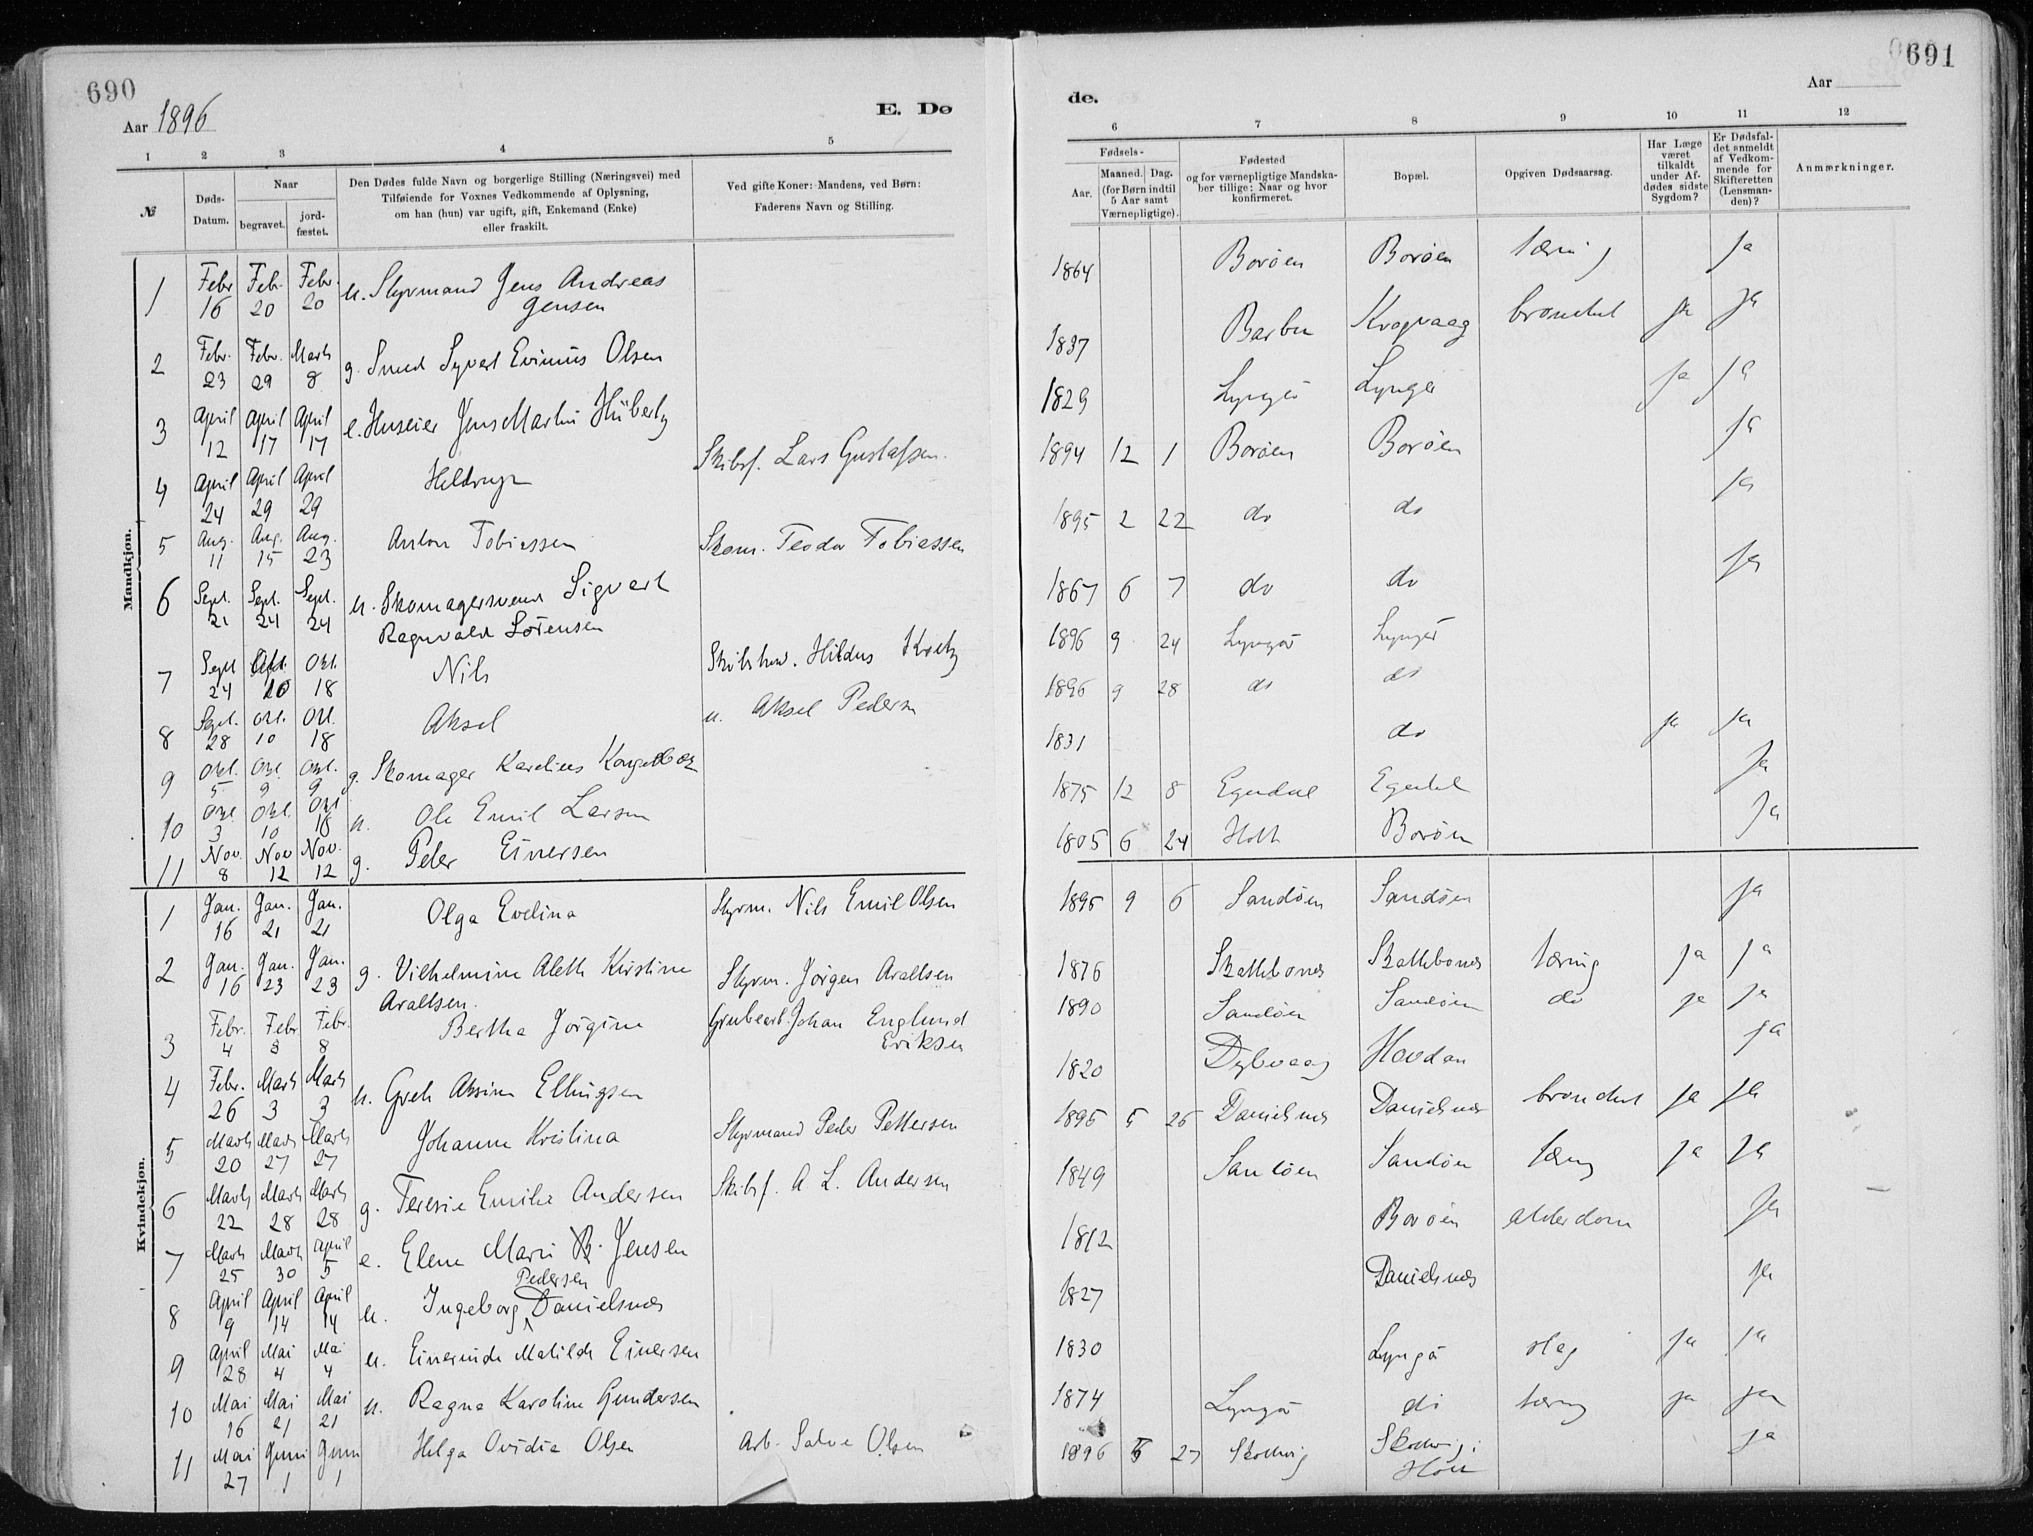 690
Aar 1896
E. Dø
1 2 3 4 5
№
Døds-
Datum.
Naar
begravet.
jord-
fæstet.
Den Dødes fulde Navn og borgerlige Stilling (Næringsvei) med
Tilføiende for Voxnes Vedkommende af Oplysning,
om han (hun) var ugift, gift, Enkemand (Enke)
eller fraskilt.
Ved gifte Koner: Mandens, ved Børn:
Faderens Navn og Stilling.
Mandkjøn.
1 Febr 16 Feb. 20 Febr. 20 u. Styrmand Jens Andreas
Jensen
2 Febr. 23 Febr. 29 Marts 8 g. Smed Syvert Evinius Olsen
3 April 12 April 17 April 17 e. Huseier Jens Martin Hüberty
4 April 24 April 29 April 29 Skibsf. Lars Gustafsen.
5 Aug. 11 Aug. 15 Aug. 23 Anton Tobiassen Skom. Teodor Tobiassen
6 Sept. 21 Sept. 24 Sept. 24 u. Skomagersvend Sigvart
Ragnvald Sørensen
7 Sept 24 Okt. 10 Okt. 18 Nils Hildus
8 Sept. 28 Okt. 10 Okt. 18 Aksel u. Aksel Pedersn
9 Okt. 5 Okt. 9 Okt. 9 g. Skomager Karelius
10 Okt. 3 Okt. 10 Okt 18 u. Ole Emil Larsen
11 Nov. 8 Nov 12 Nov. 12 g. Peter Einersen
Kvindekjøn.
1 Jan. 16 Jan. 21 Jan. 21 Olga Evelina Styrm. Nils Emil Olsen
2 Jan. 16 Jan. 23 Jan. 23 g. Vilhelmine Aleth Kirstine
Araltsen. Styrm. Jørgen Araltsen
3 Febr. 4 Febr 8 Febr. 8 Bertha Jørgine Grubearb. Johan Englund
Eriksen
4 Febr. 26 Marts 3 Marts 3 u. Greth Aksine Ellingsen
5 Marts 20 Marts 27 Marts 27 Johanne Kristina Styrmand Peder Pettersen
6 Marts 22 Marts 28 Marts 28 g. Teresie Emilie Andersen Skibsf. A L. Andersen
7 Marts 25 Marts 30 April 5 e. Elene Marie B. Jensen
Pedersen
8 April 9 April 14 April 14 u. Ingeborg Danielsnes
9 April 28 Mai 4 Mai 4 u. Einerinde Matilde Einersen
10 Mai 16 Mai 21 Mai 21 u. Ragna Karoline Gundersen
11 Mai 27 Juni 1 Juni 1 Helga Ovidia Olsen Arb. Salve Olsen
691
Aar
de.
6 7 8 9 10 11 12
Fødsels-
Aar.
Maaned.
Dag.
(for Børn indtil
5 Aar samt
Værnepligtige).
Fødested
og for værnepligtige Mandska-
ber tillige: Naar og hvor
konfirmeret.
Bopæl.
Opgiven Dødsaarsag.
Har Læge
været
tilkaldt
under Af-
dødes sidste
Sygdom?
Er Dødsfal-
det anmeldt
af Vedkom-
mende for
Skifteretten
(Lensman-
den)?
Anmærkninger.
1864 Borøen Borøen tæring ja
1837 Barbu Kvapvaag bronchit ja ja
1829 Lyngør Lyngør ja ja
1894 12 1 Borøen Borøen ja
1895 2 22 do do ja
1867 6 7 do do ja
1896 9 24 Lyngør Lyngør
1896 9 28 do do
1831 do ja ja
1875 12 8 Egendal Egendal ja
1805 6 24 Holt Borøen ja
1895 9 6 Sandøen Sandøen ja
1876 Skattebones Skattebones tæring ja ja
1890 Sandøen Sandøen do ja ja
1820 Dybvaag Hovdan ja
1895 5 26 Danielsnes Danielsnes bronchit ja ja
1849 Sandøen Sandøen tæring ja ja
1812 Borøen alderdom ja
1827 Danielsnes ja
1830 Lyngør slag ja ja
1874 Lyngør do tæring ja ja
1896 5 27 Skodvig Skodvig i
Holt ja